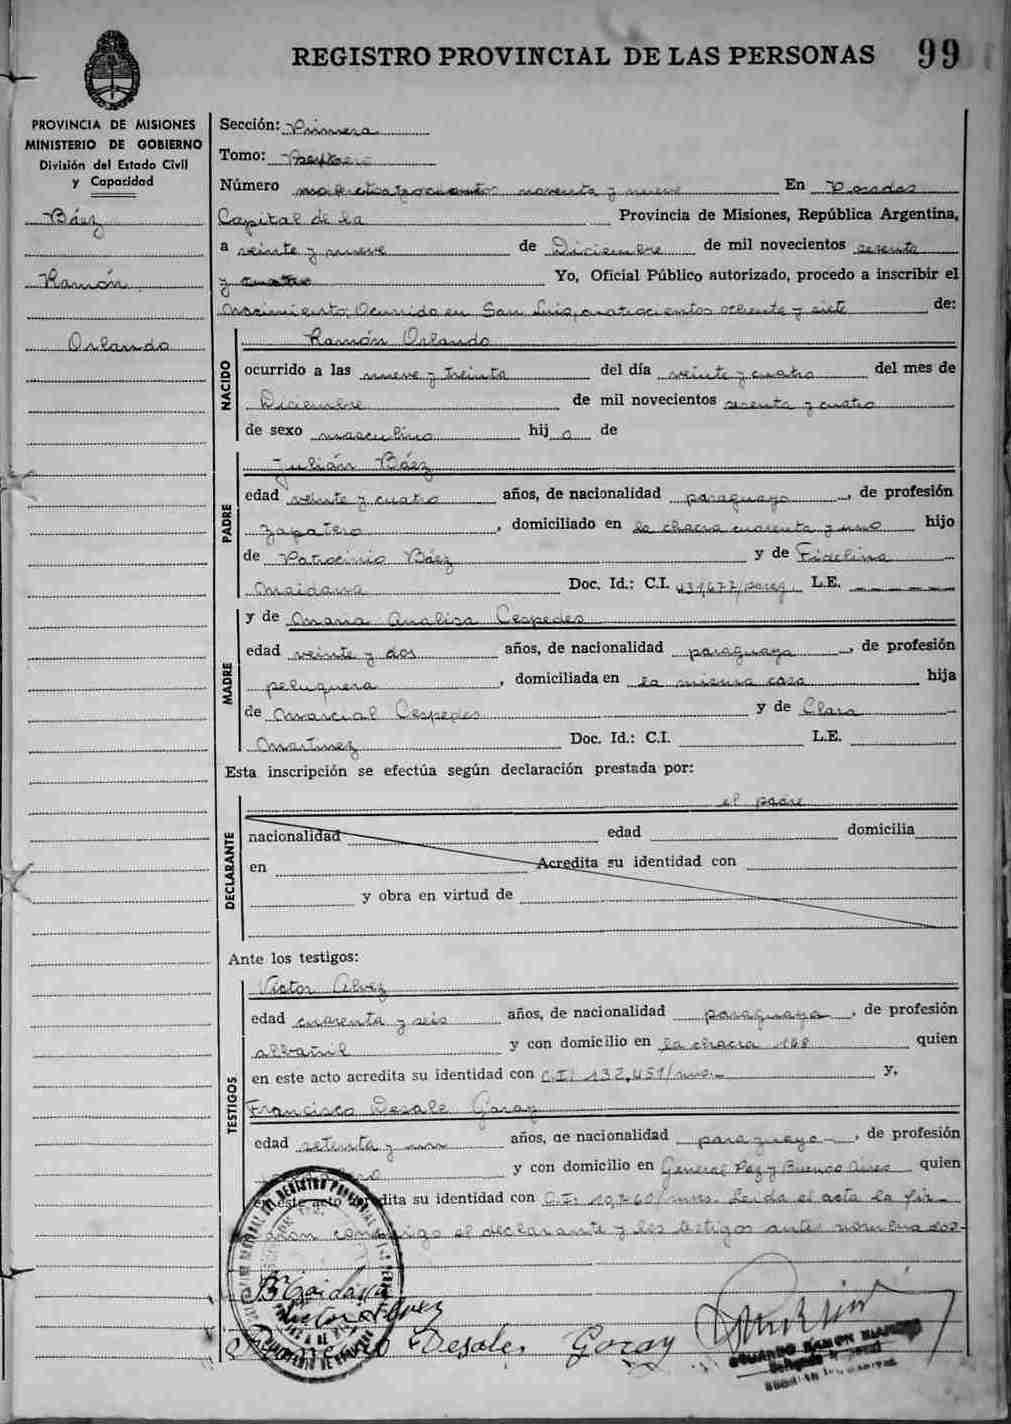 REGISTRO PROVINCIAL DE LAS PERSONAS 99
PROVINCIA DE MISIONES
MINISTERIO DE GOBIERNO
División del Estado Civil
y Capacidad
Báez
Ramón
Orlando
Sección: Primera
Tomo:
Número noventa y nueve En Posadas
Capital de la Provincia de Misiones, República Argentina,
a veinte y nueve de Diciembre de mil novecientos sesenta
y cuatro Yo, Oficial Público autorizado, procedo a inscribir el
nacimiento, Ocurrido en San Luis, cuatrocientos ochenta y siete de:
NACIDO
Ramón Orlando
ocurrido a las nueve y treinta del día veinte y cuatro del mes de
Diciembre de mil novecientos sesenta y cuatro
de sexo masculino hijo de
PADRE
Julián Báez
edad veinte y cuatro años, de nacionalidad paraguayo, de profesión
zapatero, domiciliado en la chacra cuarenta y uno hijo
de Patrocinio Báez y de Fidelina
Maidana Doc. Id.: C.I. 439,677/parag. L.E.
MADRE
y de María Analisa Cespedes
edad veinte y dos años, de nacionalidad paraguaya, de profesión
peluquera, domiciliada en la misma casa hija
de Marcial Cespedes y de Clara
Martinez Doc. Id.: C.I. L.E.
Esta inscripción se efectúa según declaración prestada por:
DECLARANTE
el padre
nacionalidad edad domicilia
en Acredita su identidad con
y obra en virtud de
Ante los testigos:
TESTIGOS
Victor Alvez
edad cuarenta y seis años, de nacionalidad paraguaya, de profesión
albañil y con domicilio en la chacra 188 quien
en este acto acredita su identidad con C.I: 132,451/mnes. y,
Francisco Desale Garay
edad setenta y un años, de nacionalidad paraguayo, de profesión
y con domicilio en General Paz y Buenos Aires quien
este acto acredita su identidad con C.I: 10,760/mns. Leida el acta la fir-
man conmigo el declarante y los testigos antes nombrados-
Victor Alvez
Desales Garay